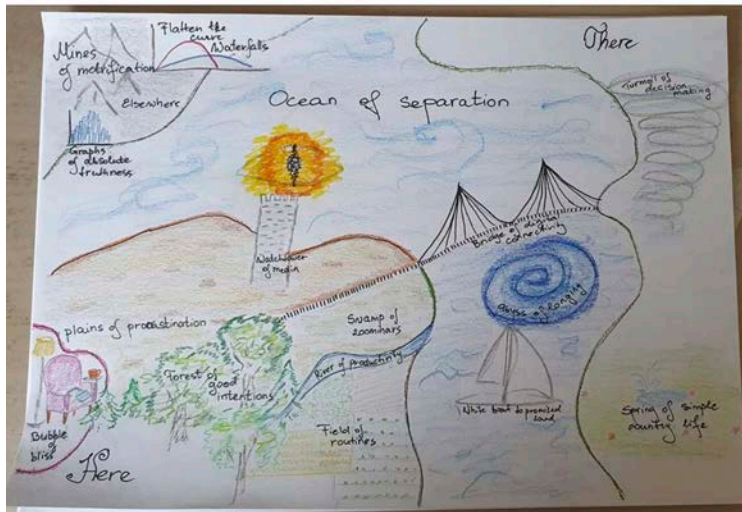 Mines
of motrification
Flatten the
curve
Waterfalls
Elsewhere
Graphs
of absolute
truthness
There
Turmoil of
decision
making
Ocean of separation
Watchtower
of media
Bridge of digital
connectivity
Abyss of longing
plains of procrastination
Swamp of
zoominars
River of productivity
Forest of
good
intentions
Field of
routines
White boat to promised
land
Spring of simple
country life
Bubble
of
bliss
Here